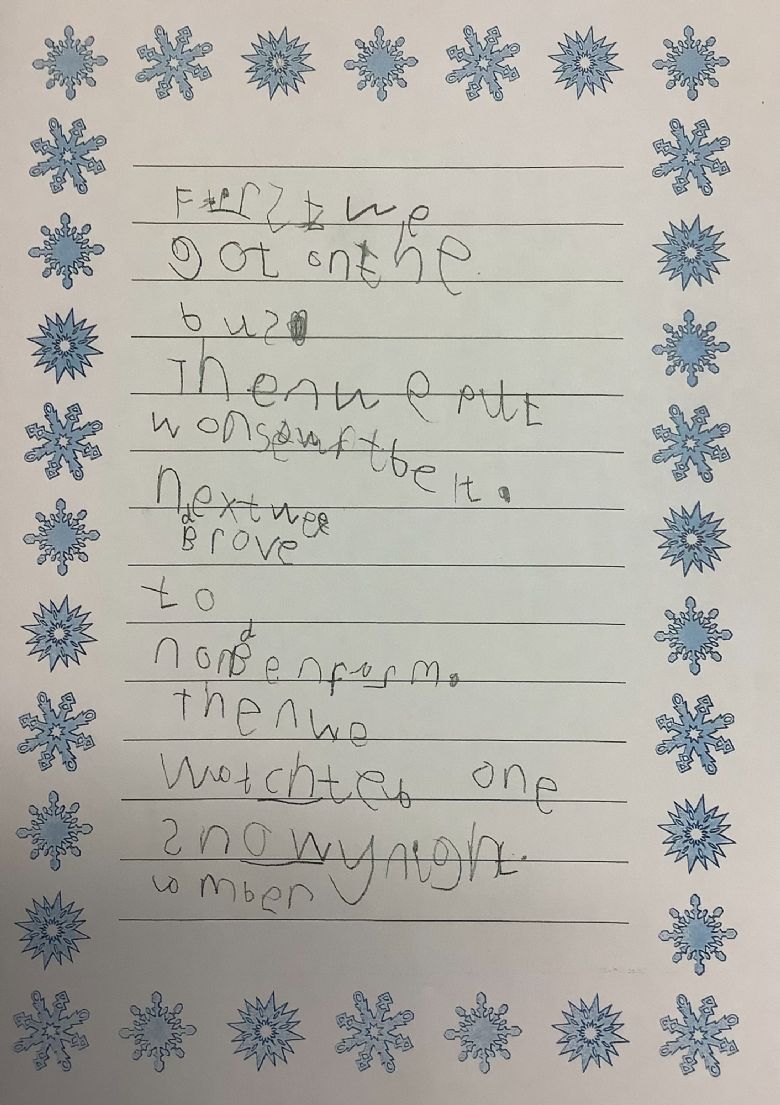 First we
got on the
bus
Then we put
won seuftbelt.
next wee
d
Brove
to
d
nonBenform.
then we
wotchteb one
snowy night.
womben